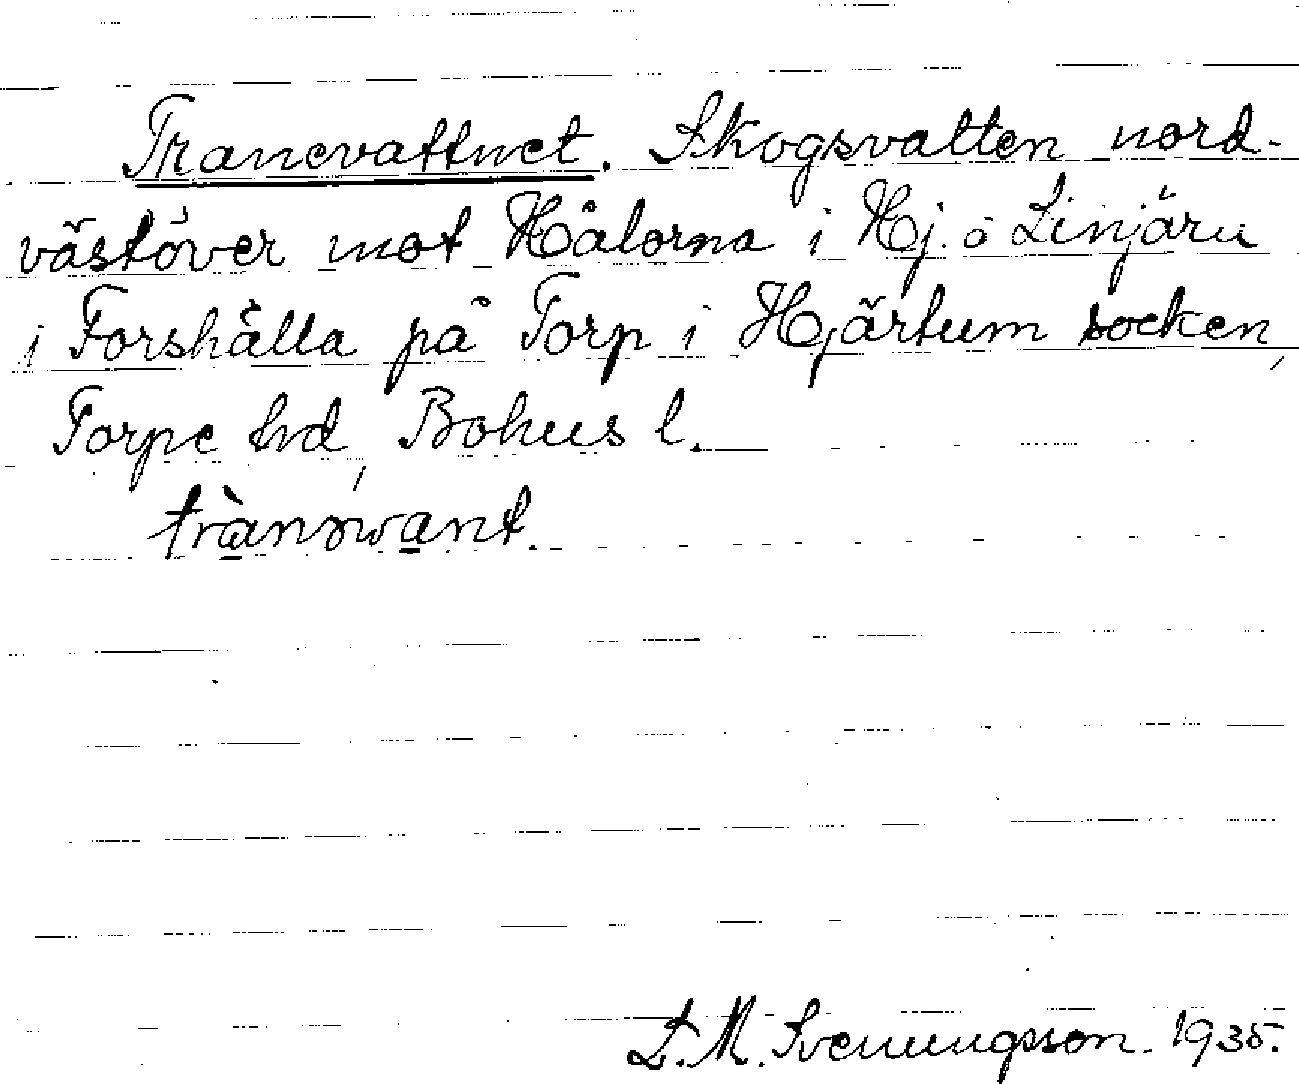 Tranevattnet. Skogsvatten nord-
västöver mot Hålorna i Hj. o Linjäru
i Forshälla på Torp i Hjärtum socken,
Torpe hd, Bohus l.
trànəvant.
L. M. Svenungsson. 1935.